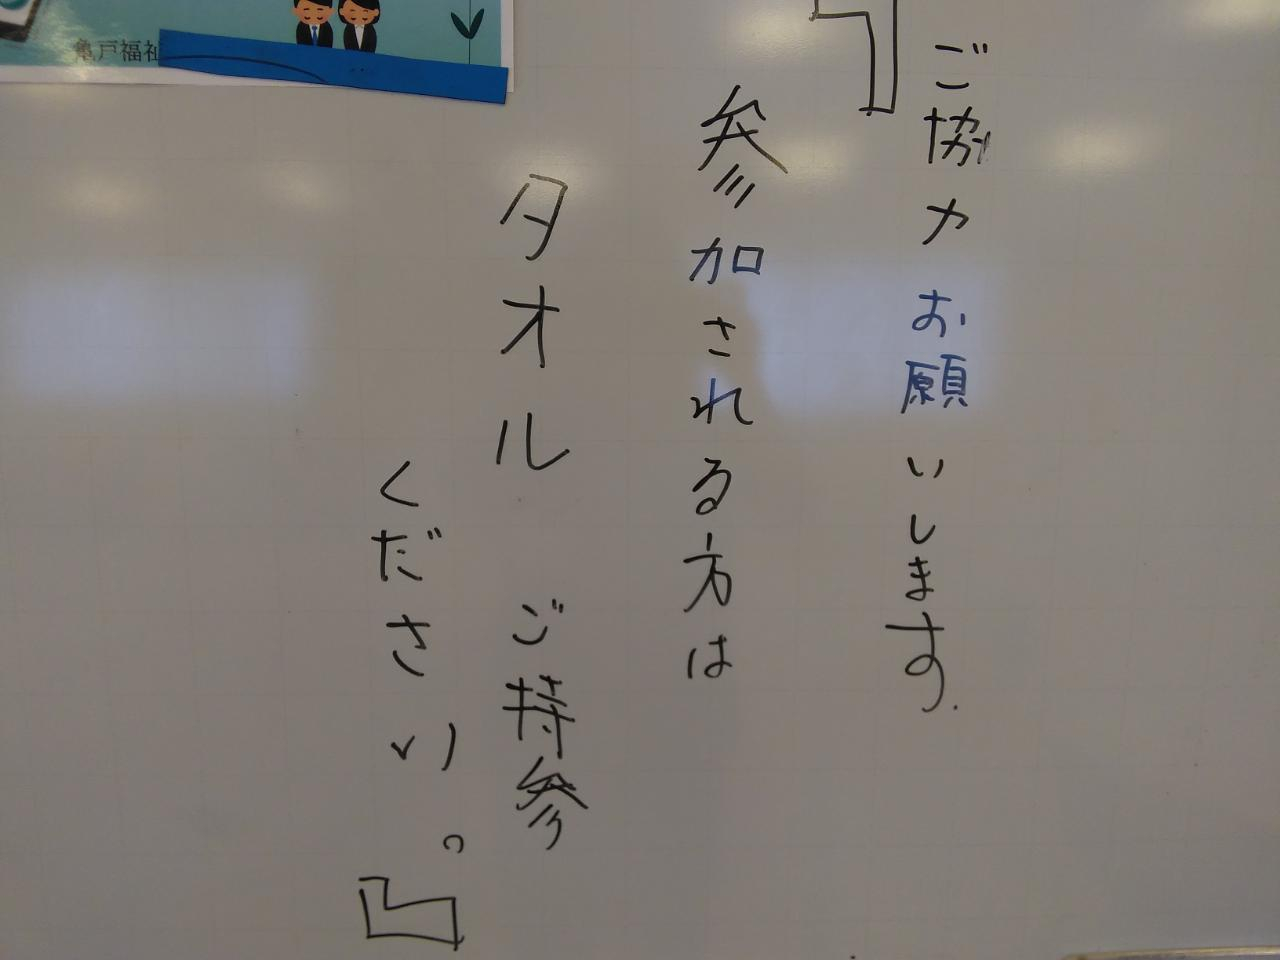 ご協力お願いします.
『参加される方は
タオル ご持参
ください。』
亀戸福祉